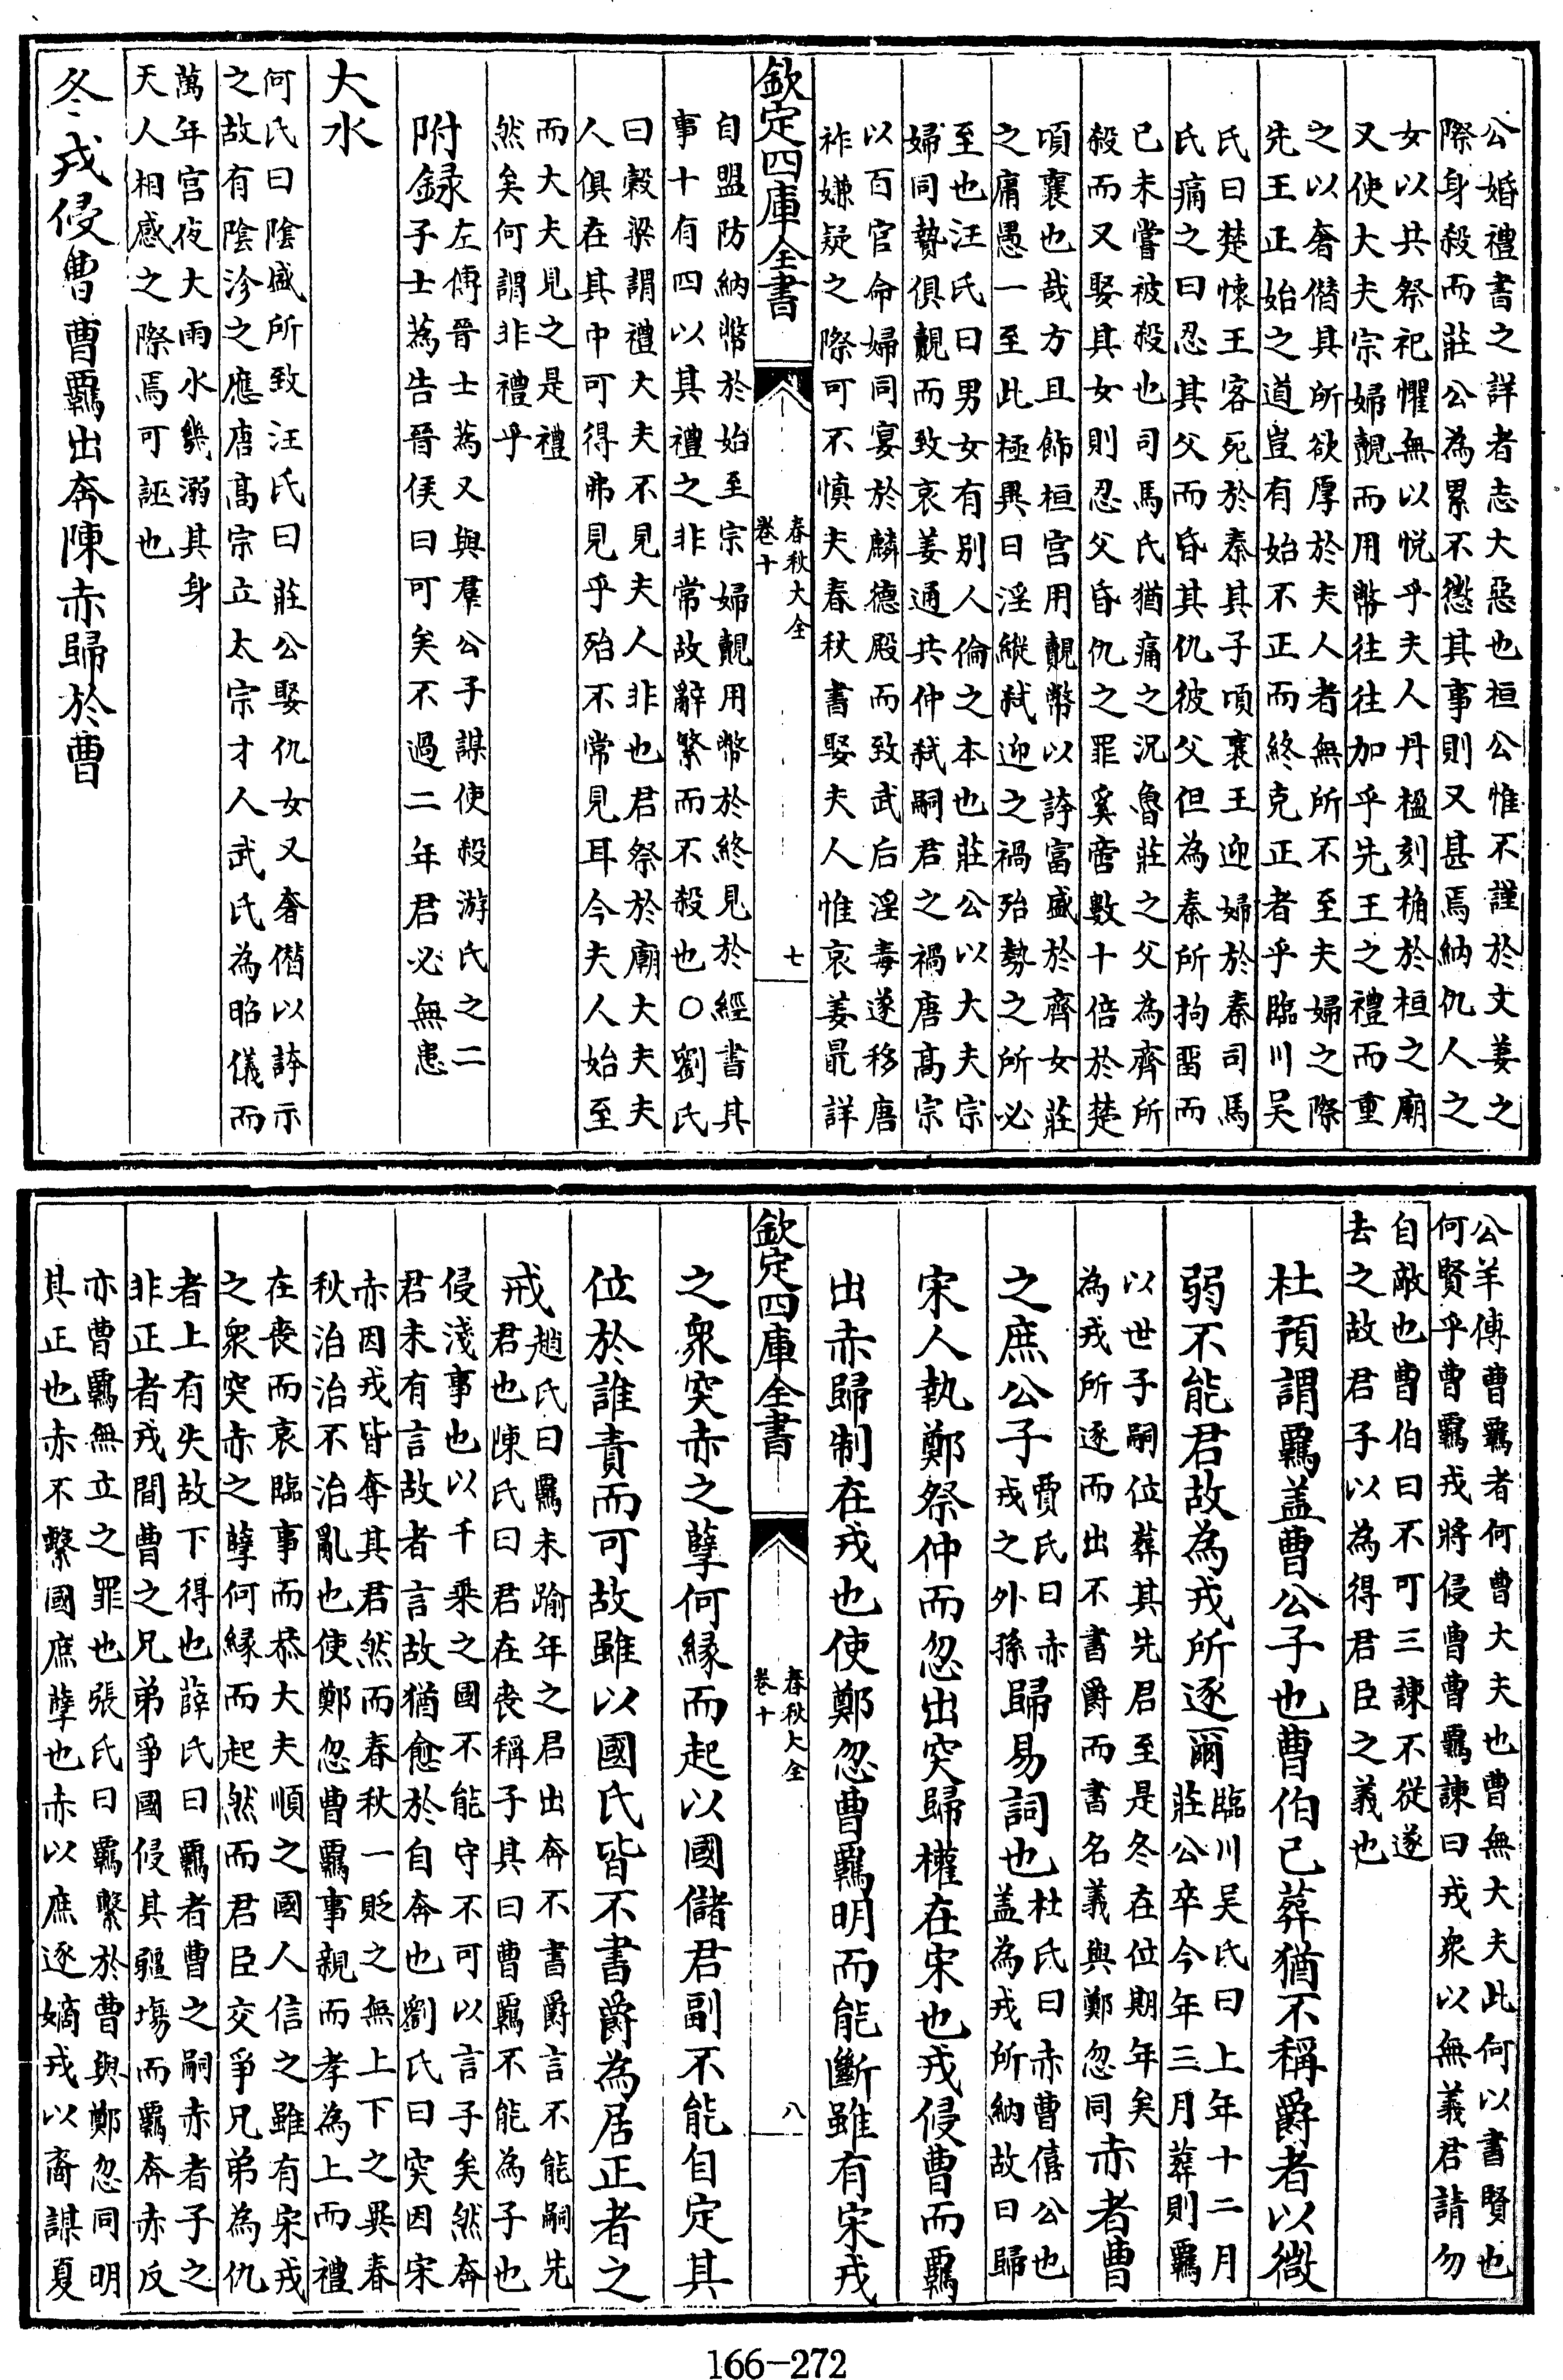 公婚禮書之詳者志大惡也桓公惟不謹於文姜之
際身殺而莊公為累不懲其事則又甚焉納仇人之
女以共祭祀懼無以悦乎夫人丹楹刻桷於桓之廟
又使大夫宗婦覿而用幣往往加乎先王之禮而重
之以奢僭其所欲厚於夫人者無所不至夫婦之際
先王正始之道豈有始不正而終克正者乎臨川吳
氏曰楚懷王客死於秦其子頃襄王迎婦於秦司馬
氏痛之曰忍其父而昏其仇彼父但為秦所拘留而
已未嘗被殺也司馬氏猶痛之况魯莊之父為齊所
殺而又娶其女則忍父昏仇之罪奚啻數十倍於楚
頃襄也哉方且飾桓宮用覿幣以誇富盛於齊女莊
之庸愚一至此極異日淫縱弑逆之禍殆勢之所必
至也汪氏曰男女有别人倫之本也莊公以大夫宗
婦同贄俱覿而致哀姜通共仲弑嗣君之禍唐髙宗
以百官命婦同宴於麟德殿而致武后淫毒遂移唐
祚嫌疑之際可不慎夫春秋書娶夫人惟哀姜最詳
欽定四庫全書
春秋大全
卷十
七
自盟防納幣於始至宗婦覿用幣於終見於經書其
事十有四以其禮之非常故辭繁而不殺也○劉氏
曰穀梁謂禮大夫不見夫人非也君祭於廟大夫夫
人俱在其中可得弗見乎殆不常見耳今夫人始至
而大夫見之是禮
然矣何謂非禮乎
附録左傳晉士蒍又與羣公子謀使殺游氏之二
子士蒍告晉侯曰可矣不過二年君必無患
大水
何氏曰陰盛所致汪氏曰莊公娶仇女又奢僭以誇示
之故有陰沴之應唐髙宗立太宗才人武氏為昭儀而
萬年宫夜大雨水幾溺其身
天人相感之際焉可誣也
冬戎侵曹曹羈出奔陳赤歸於曹
公羊傳曹羈者何曹大夫也曹無大夫此何以書賢也
何賢乎曹羈戎將侵曹曹羈諫曰戎衆以無義君請勿
自敵也曹伯曰不可三諫不從遂
去之故君子以為得君臣之義也
杜預謂羈蓋曹公子也曹伯已葬猶不稱爵者以微
弱不能君故為戎所逐爾臨川吳氏曰上年十二月
莊公卒今年三月葬則羈
以世子嗣位葬其先君至是冬在位期年矣
為戎所逐而出不書爵而書名義與鄭忽同赤者曹
之庶公子賈氏曰赤
戎之外孫歸易詞也杜氏曰赤曹僖公也
蓋為戎所納故曰歸
宋人執鄭祭仲而忽出突歸權在宋也戎侵曹而羈
出赤歸制在戎也使鄭忽曹羈明而能斷雖有宋戎
欽定四庫全書
春秋大全
卷十
八
之衆突赤之孽何縁而起以國儲君副不能自定其
位於誰責而可故雖以國氏皆不書爵為居正者之
戒趙氏曰羈未踰年之君出奔不書爵言不能嗣先
君也陳氏曰君在喪稱子其曰曹羈不能為子也
侵淺事也以千乘之國不能守不可以言子矣然奔
君未有言故者言故猶愈於自奔也劉氏曰突因宋
赤因戎皆奪其君然而春秋一貶之無上下之異春
秋治治不治亂也使鄭忽曹羈事親而孝為上而禮
在喪而哀臨事而恭大夫順之國人信之雖有宋戎
之衆突赤之孽何縁而起然而君臣交爭兄弟為仇
者上有失故下得也薛氏曰羈者曹之嗣赤者子之
非正者戎間曹之兄弟爭國侵其疆場而羈奔赤反
亦曹羈無立之罪也張氏曰羈繫於曹與鄭忽同明
其正也赤不繫國庶孽也赤以庶逐嫡戎以裔謀夏
166-272